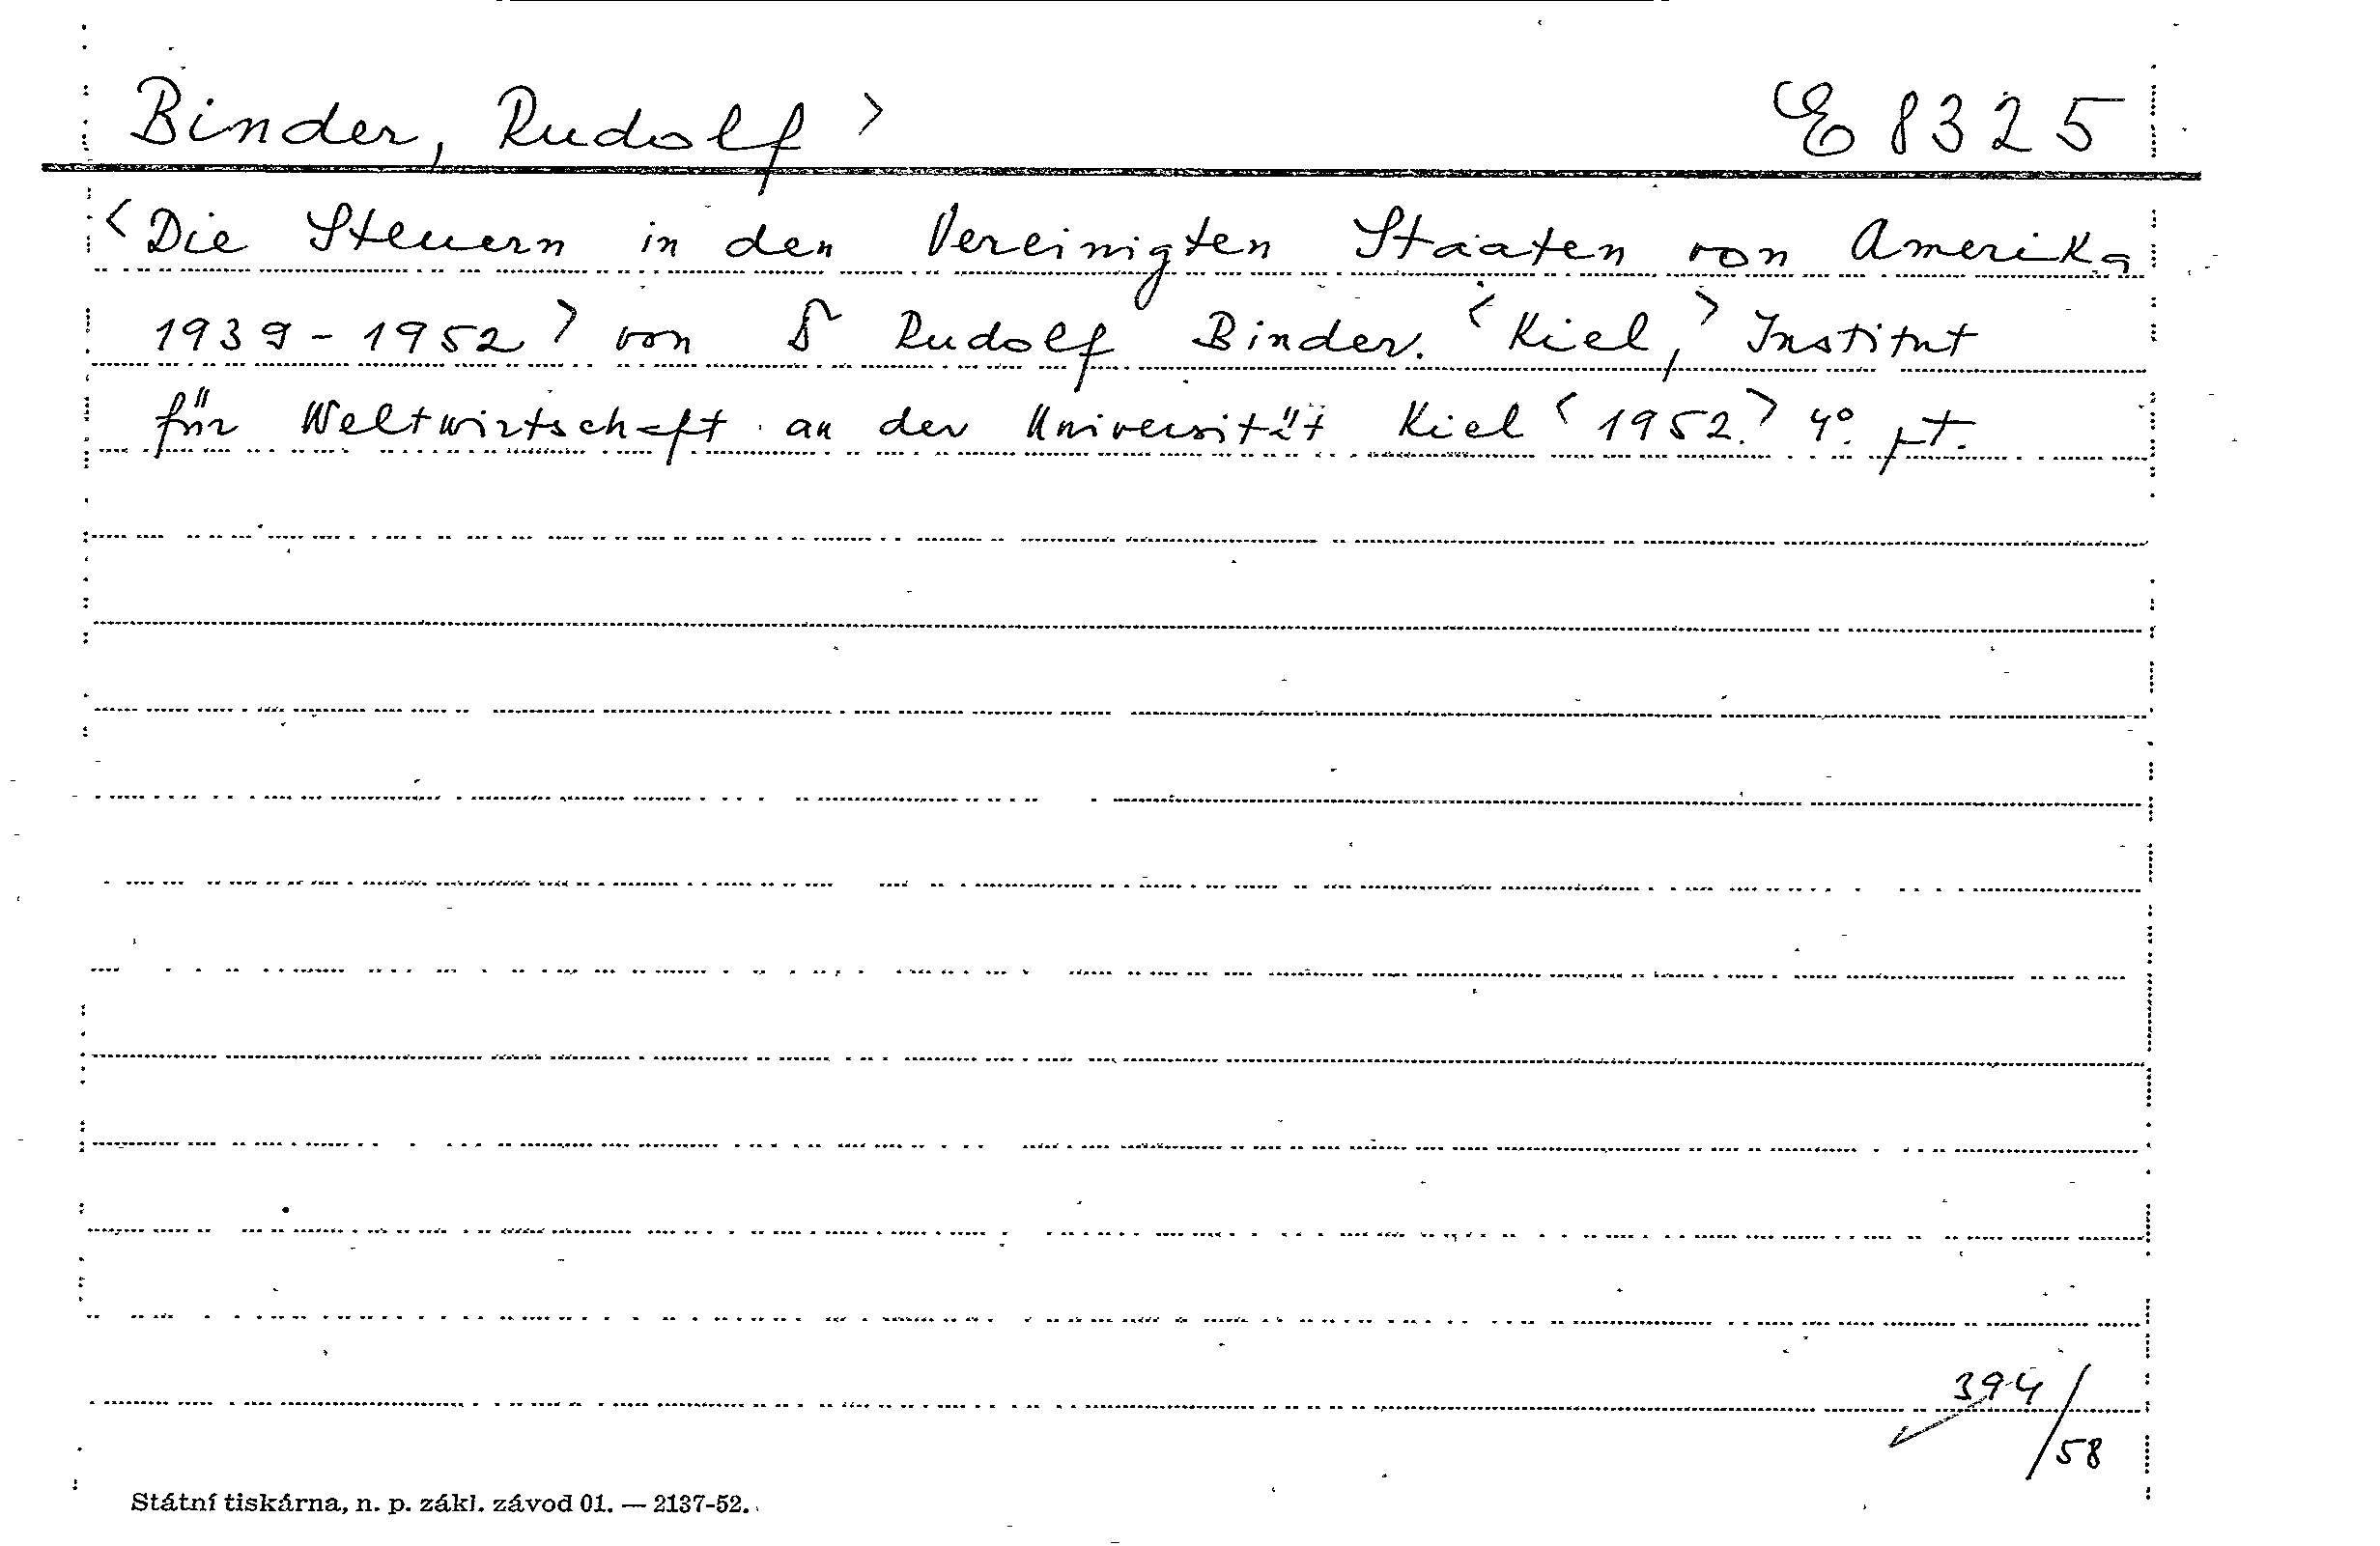 Binder, Rudolf > E 8325
<Die Steuern in den Vereinigten Staaten von Amerika
1939-1952> von Rudolf Binder. <Kiel,> Institut
für Weltwirtschaft an der Universität Kiel <1952.> 4° pt.
394/58
Státní tiskárna, n. p. zákl. závod 01. — 2137-52.